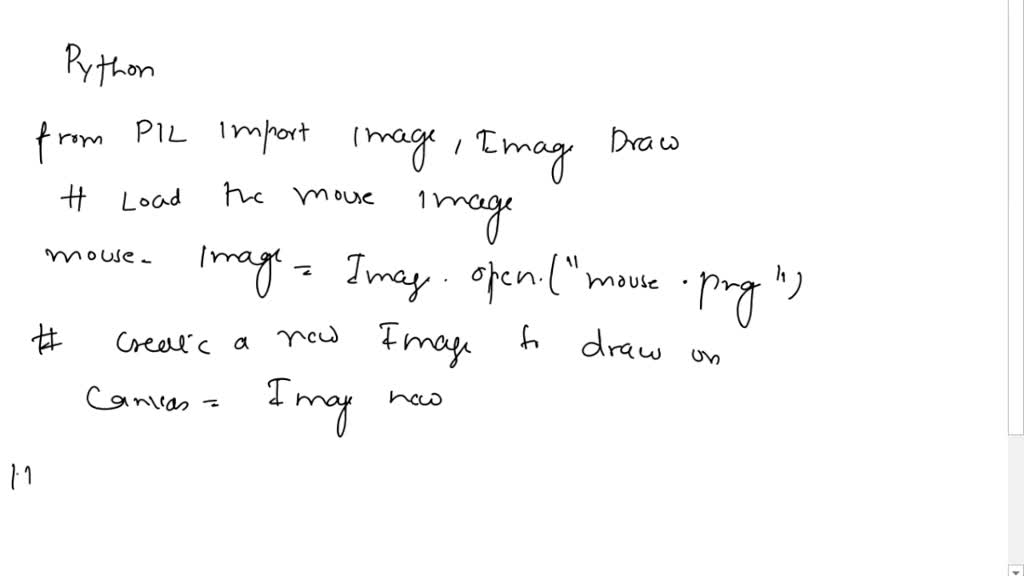 Python
from PIL import Image, Image Draw
# Load the mouse image
mouse- Image = Image. open.("mouse.png")
# create a new Image to draw on
Canvas = Image new